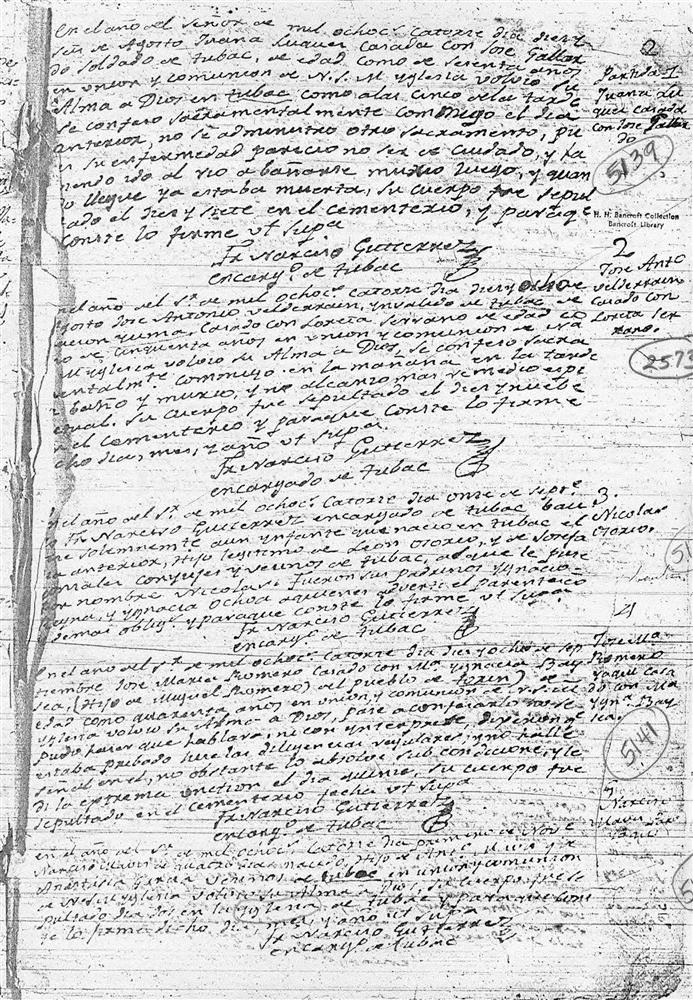 En el año del Señor de mil ochoc.s Catorze dia diez y
seis de Agosto Juana Luque Casada con Jose Gallar
do Soldado de tubac, de edad como de sesenta años
en union y comunion de N. S. M. yglesia volvio su
Alma a Dios en tubac como a las Cinco de la tarde
se confeso sacramentalmente commigo el dia
anterior, no se administro otro sacramento, pu
su enfermedad parecio no ser de cuidado, y ha
viendo ido al rio a bañarse murio luego, y quan
do llegue ya estaba muerta, su cuerpo fue sepul
tado el diez y siete en el cementerio, y para que
conste lo firme vt supa
Fr Narciso Gutierrez
encarg.o de tubac
2
Partida 1
Juana Lu
que Casada
con Jose Gallar
do
5139
H. H. Bancroft Collection
Bancroft Library
el año del S.r de mil ochoc.s Catorze dia diez y ocho de
gosto Jose Antonio Velderrain, ynvalido de tubac de
nacion yuma. Casado con Loreta Serrano de edad co
mo de Cinquenta años en union y comunion de
M yglesia volvio su Alma a Dios, se confeso sacra
mentalm.te commigo en la mañana en la tarde
baño y murio, y no alcanzo mas remedio espi
ritual. Su cuerpo fue sepultado el diez y nuebe
el cementerio y para que conste lo firme
dicho dia, mes, y año vt supa.
Fr Narciso Gutierrez
encargado de tubac
2
Jose Ant.o
Velderrain
Casado con
Loreta Ser
rano.
2573
el año del S.r de mil ochoc.s Catorze dia onze de Sept.e
Fr Narciso Gutierrez encargado de tubac bau
tise solemnemente a un ynfante que nacio en tubac el
dia anterior, Hijo legitimo de Leon Osorio, y de Josefa
Gonzales conyuges y vecinos de tubac, al que le puse
por nombre Nicolas: fueron sus padrinos Ygnacio
y Ygnacia Ochoa a quienes adverti el parentesco
demas oblig.s y para que conste lo firme vt supa
Fr Narciso Gutierrez
encarg.o de tubac
3.
Nicolas
Osorio.
51
En el año del S.r de mil ochoc.s Catorze dia diez y ocho de sep
tiembre Jose Maria Romero Casado con M.a Ygnacia Bay
sea, (Hijo de Miguel Romero) del pueblo de torin) de
edad como quarenta años en union, y comunion de N. S. M.
yglesia volvio su Alma a Dios, pase a confesarlo no se
pudo hacer que hablara, ni con ynterprete,
estaba privado hice las diligencias regulares, y no halle
señal en el, no obstante lo absolvi sub condicione, y le
di la extrema uncion el dia quinze, su cuerpo fue
sepultado en el cementerio fecha vt supa
Fr Narciso Gutierrez
encarg.o de tubac
4
Jose Ma.
Romero
yaqui casa
do con Ma
ygn.a Bay
sea.
5141
en el año del S.r de mil ochoc.s Catorze dia primero de Nov.e
Narciso
Anastasia vecinos de tubac en union y comunion
de N. S. M. yglesia volvio su Alma a Dios, su cuerpo fue se
pultado dia dos en la yglesia de tubac y para que cons
te lo firme dicho dia, mes, y año vt supa
Fr Narciso Gutierrez
encarg.o de tubac
5
Narciso